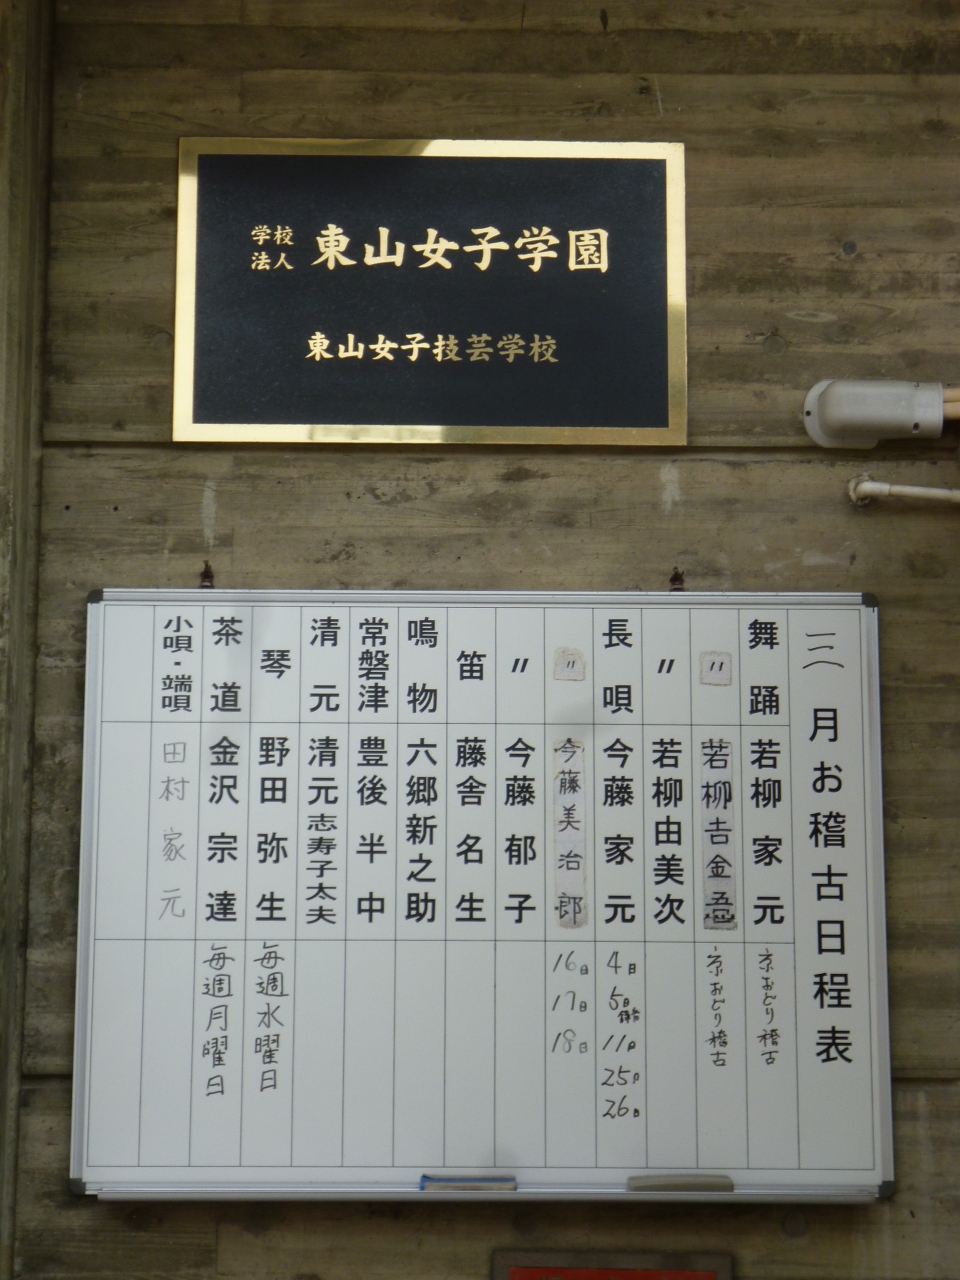 学校
法人
東山女子学園
東山女子技芸学校
三月お稽古日程表
舞踊 若柳家元 京おどり稽古
〃 若柳吉金吾 京おどり稽古
〃 若柳由美次
長唄 今藤家元 4日 5日 11日 25日 26日
〃 今藤美治郎 16日 17日 18日
〃 今藤郁子
笛 藤舎名生
鳴物 六郷新之助
常磐津 豊後半中
清元 清元志寿子太夫
琴 野田弥生 毎週水曜日
茶道 金沢宗達 毎週月曜日
小唄・端唄 田村家元